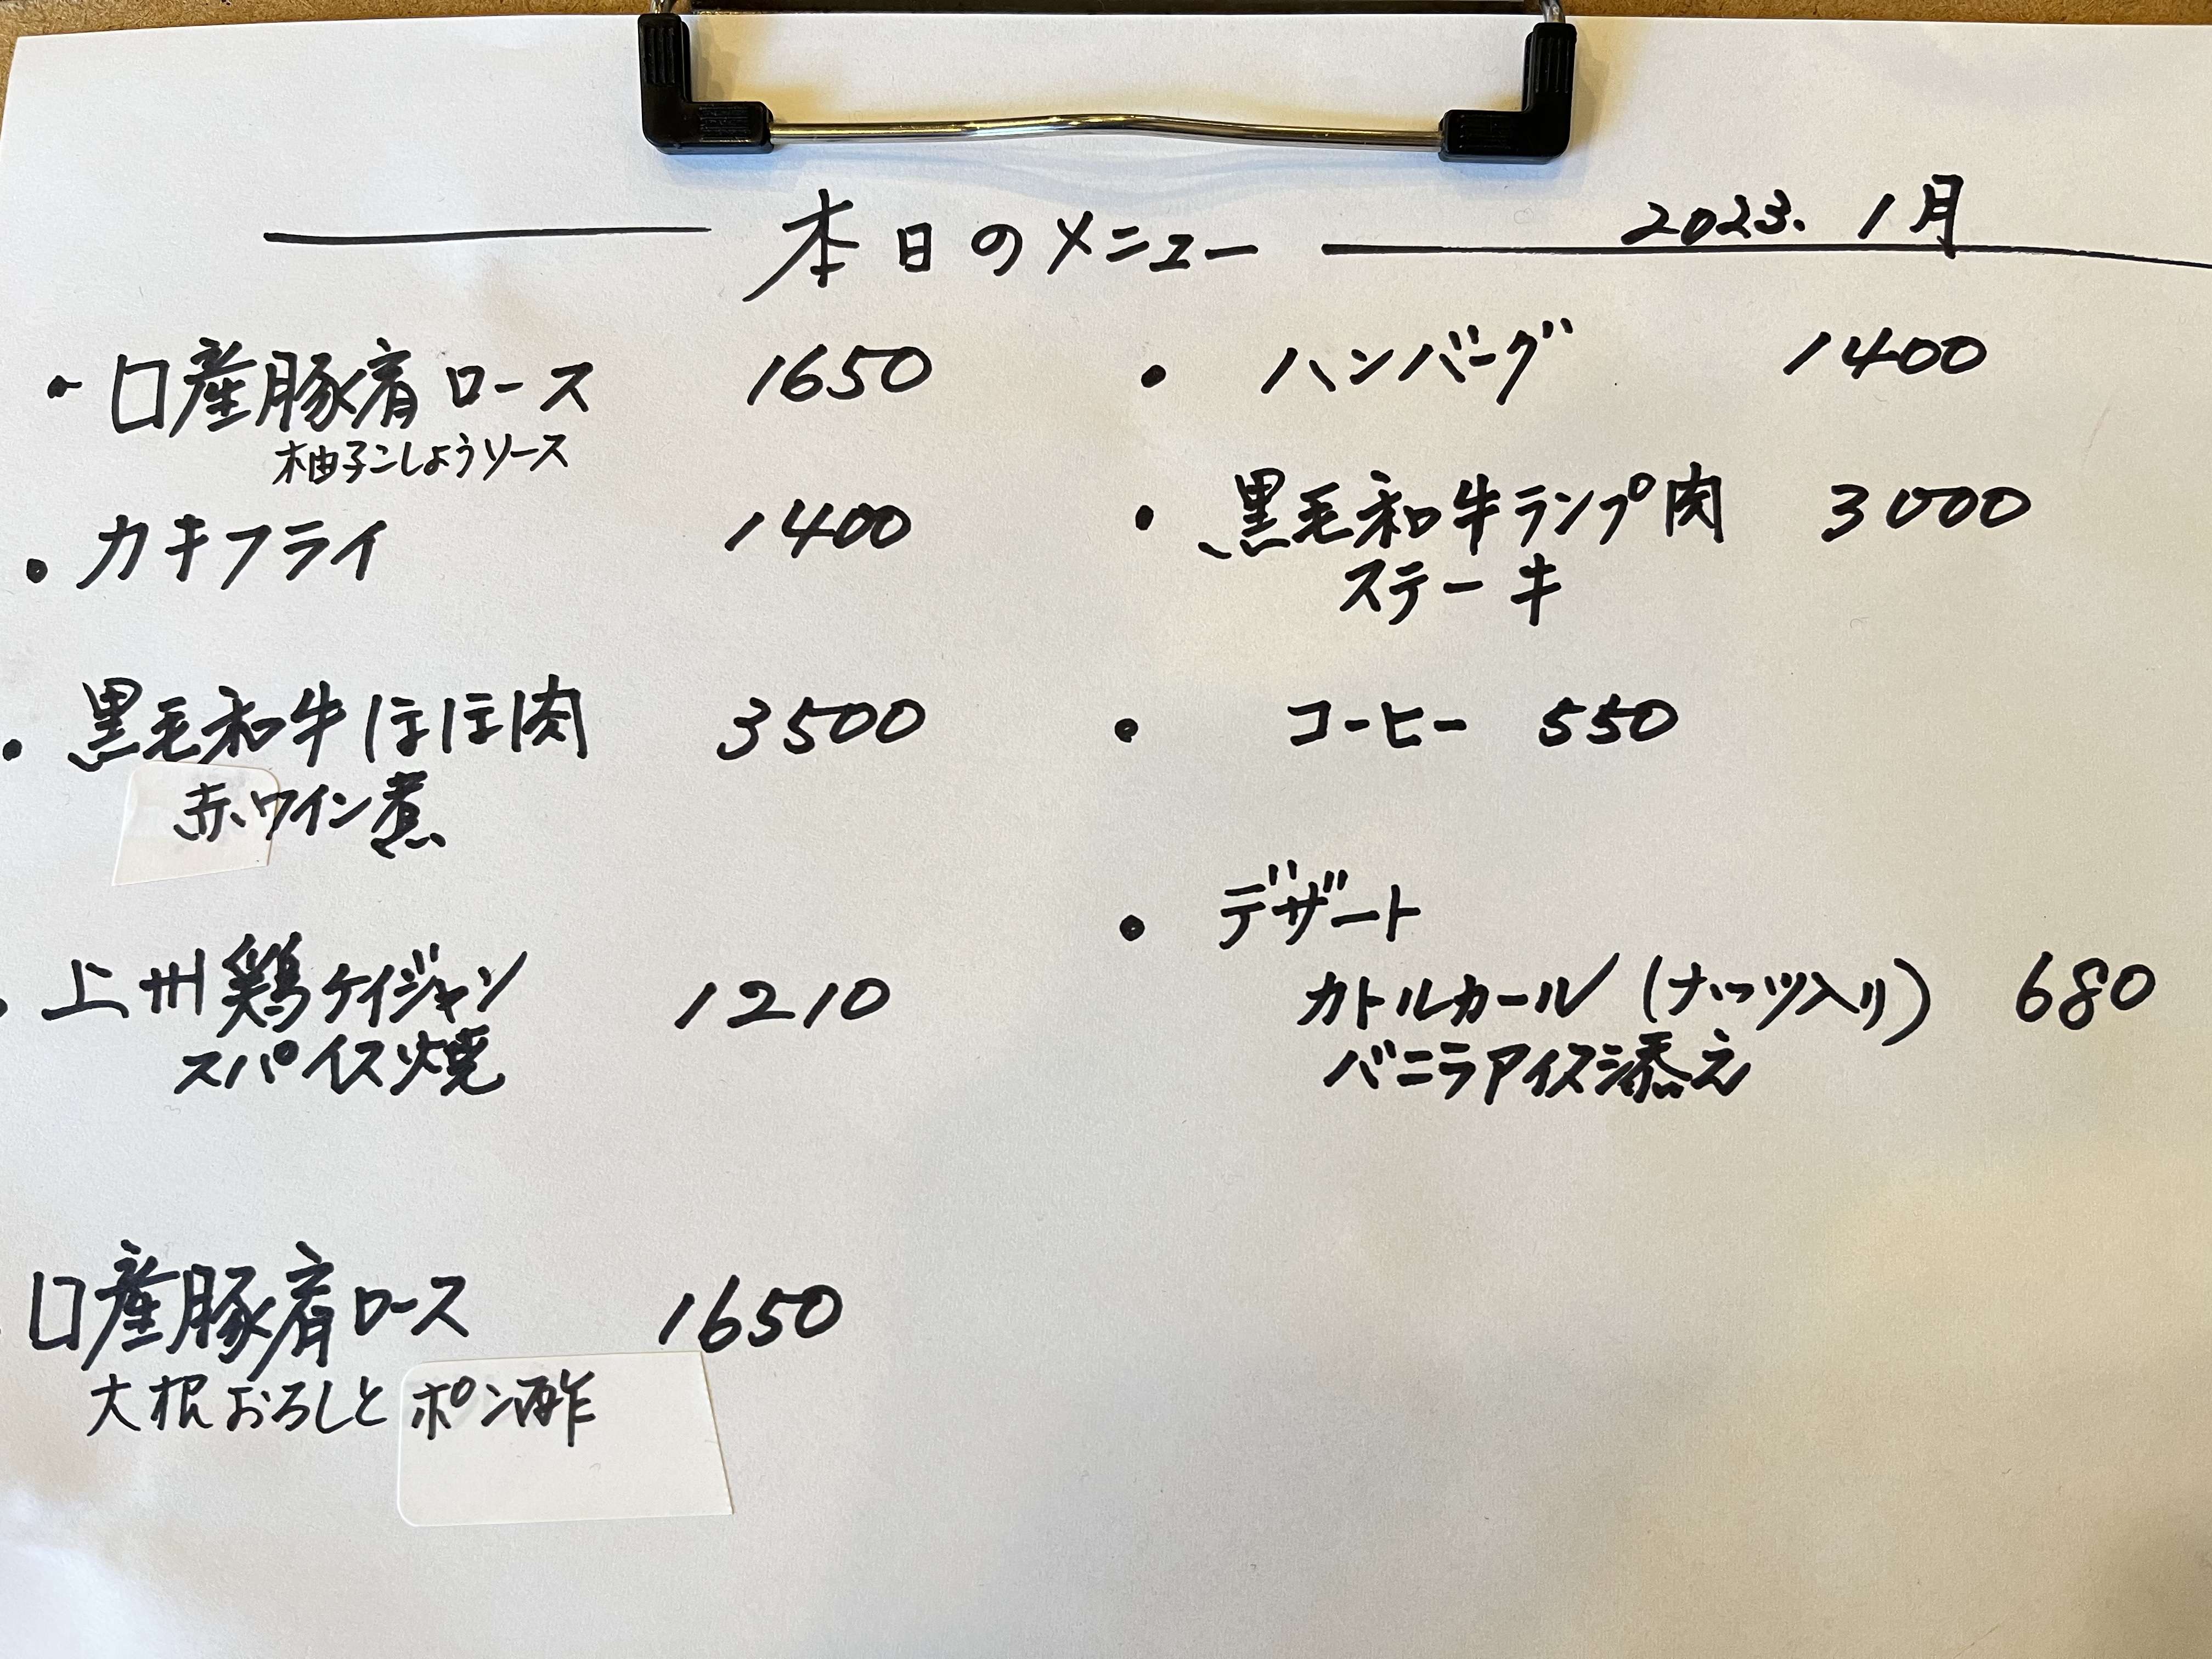 本日のメニュー 2023. 1月
• 口産豚肩ロース 1650
柚子こしょうソース
• カキフライ 1400
• 黒毛和牛ほほ肉 3500
赤ワイン煮
• 上州鶏ケイジャン 1210
スパイス焼
口産豚肩ロース 1650
大根おろしとポン酢
• ハンバーグ 1400
• 黒毛和牛ランプ肉 3000
ステーキ
• コーヒー 550
• デザート
カトルカール (ナッツ入り) 680
バニラアイス添え